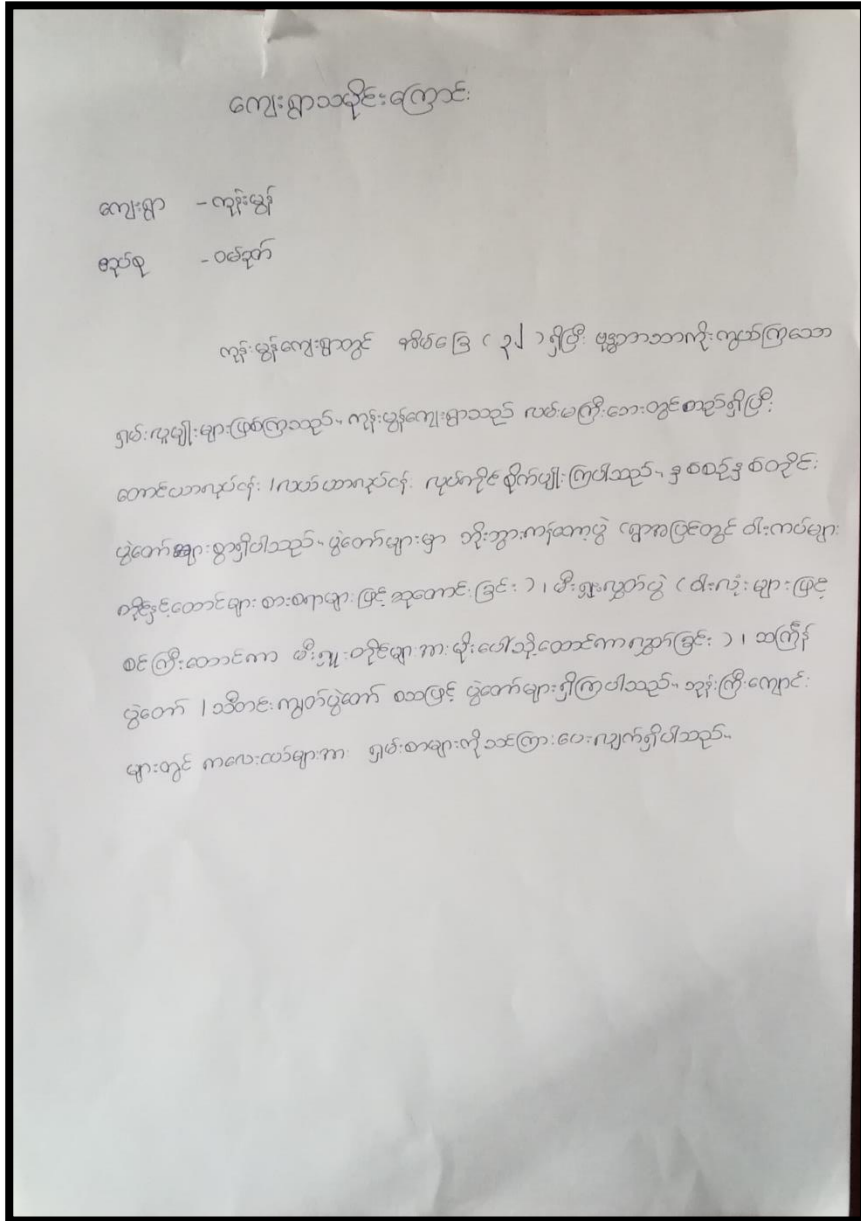 ကျေးရွာသမိုင်းကြောင်း
ကျေးရွာ - ကုန်းမွန်
အုပ်စု - ဝမ်ဒုက်
ကုန်းမွန်ကျေးရွာတွင် အိမ်ခြေ ( ၃၂ ) ရှိပြီး ဗုဒ္ဓဘာသာကိုးကွယ်ကြသော
ရှမ်းလူမျိုးများဖြစ်ကြသည်။ ကုန်းမွန်ကျေးရွာသည် လမ်းမကြီးဘေးတွင်တည်ရှိပြီး
တောင်ယာလုပ်ငန်း ၊လယ်ယာလုပ်ငန်း လုပ်ကိုင်စိုက်ပျိုးကြပါသည်။ နှစ်စဉ်နှစ်တိုင်း
ပွဲတော်များစွာရှိပါသည်။ ပွဲတော်များမှာ ဘိုးဘွားကန်တော့ပွဲ (ရွာအပြင်တွင် ဝါးကပ်များ
တိုင်နှင့်ထောင်များ စားစရာများဖြင့် ဆုတောင်းခြင်း ) ၊ မီးရှူးလွှတ်ပွဲ ( ဝါးလုံးများဖြင့်
စင်ကြီးထောင်ကာ မီးရှူးတိုင်များအား မိုးပေါ်သို့ထောင်ကာလွှတ်ခြင်း ) ၊ သင်္ကြန်
ပွဲတော် ၊ သီတင်းကျွတ်ပွဲတော် စသဖြင့် ပွဲတော်များရှိကြပါသည်။ ဘုန်းကြီးကျောင်း
များတွင် ကလေးငယ်များအား ရှမ်းစာများကိုသင်ကြားပေးလျက်ရှိပါသည်။